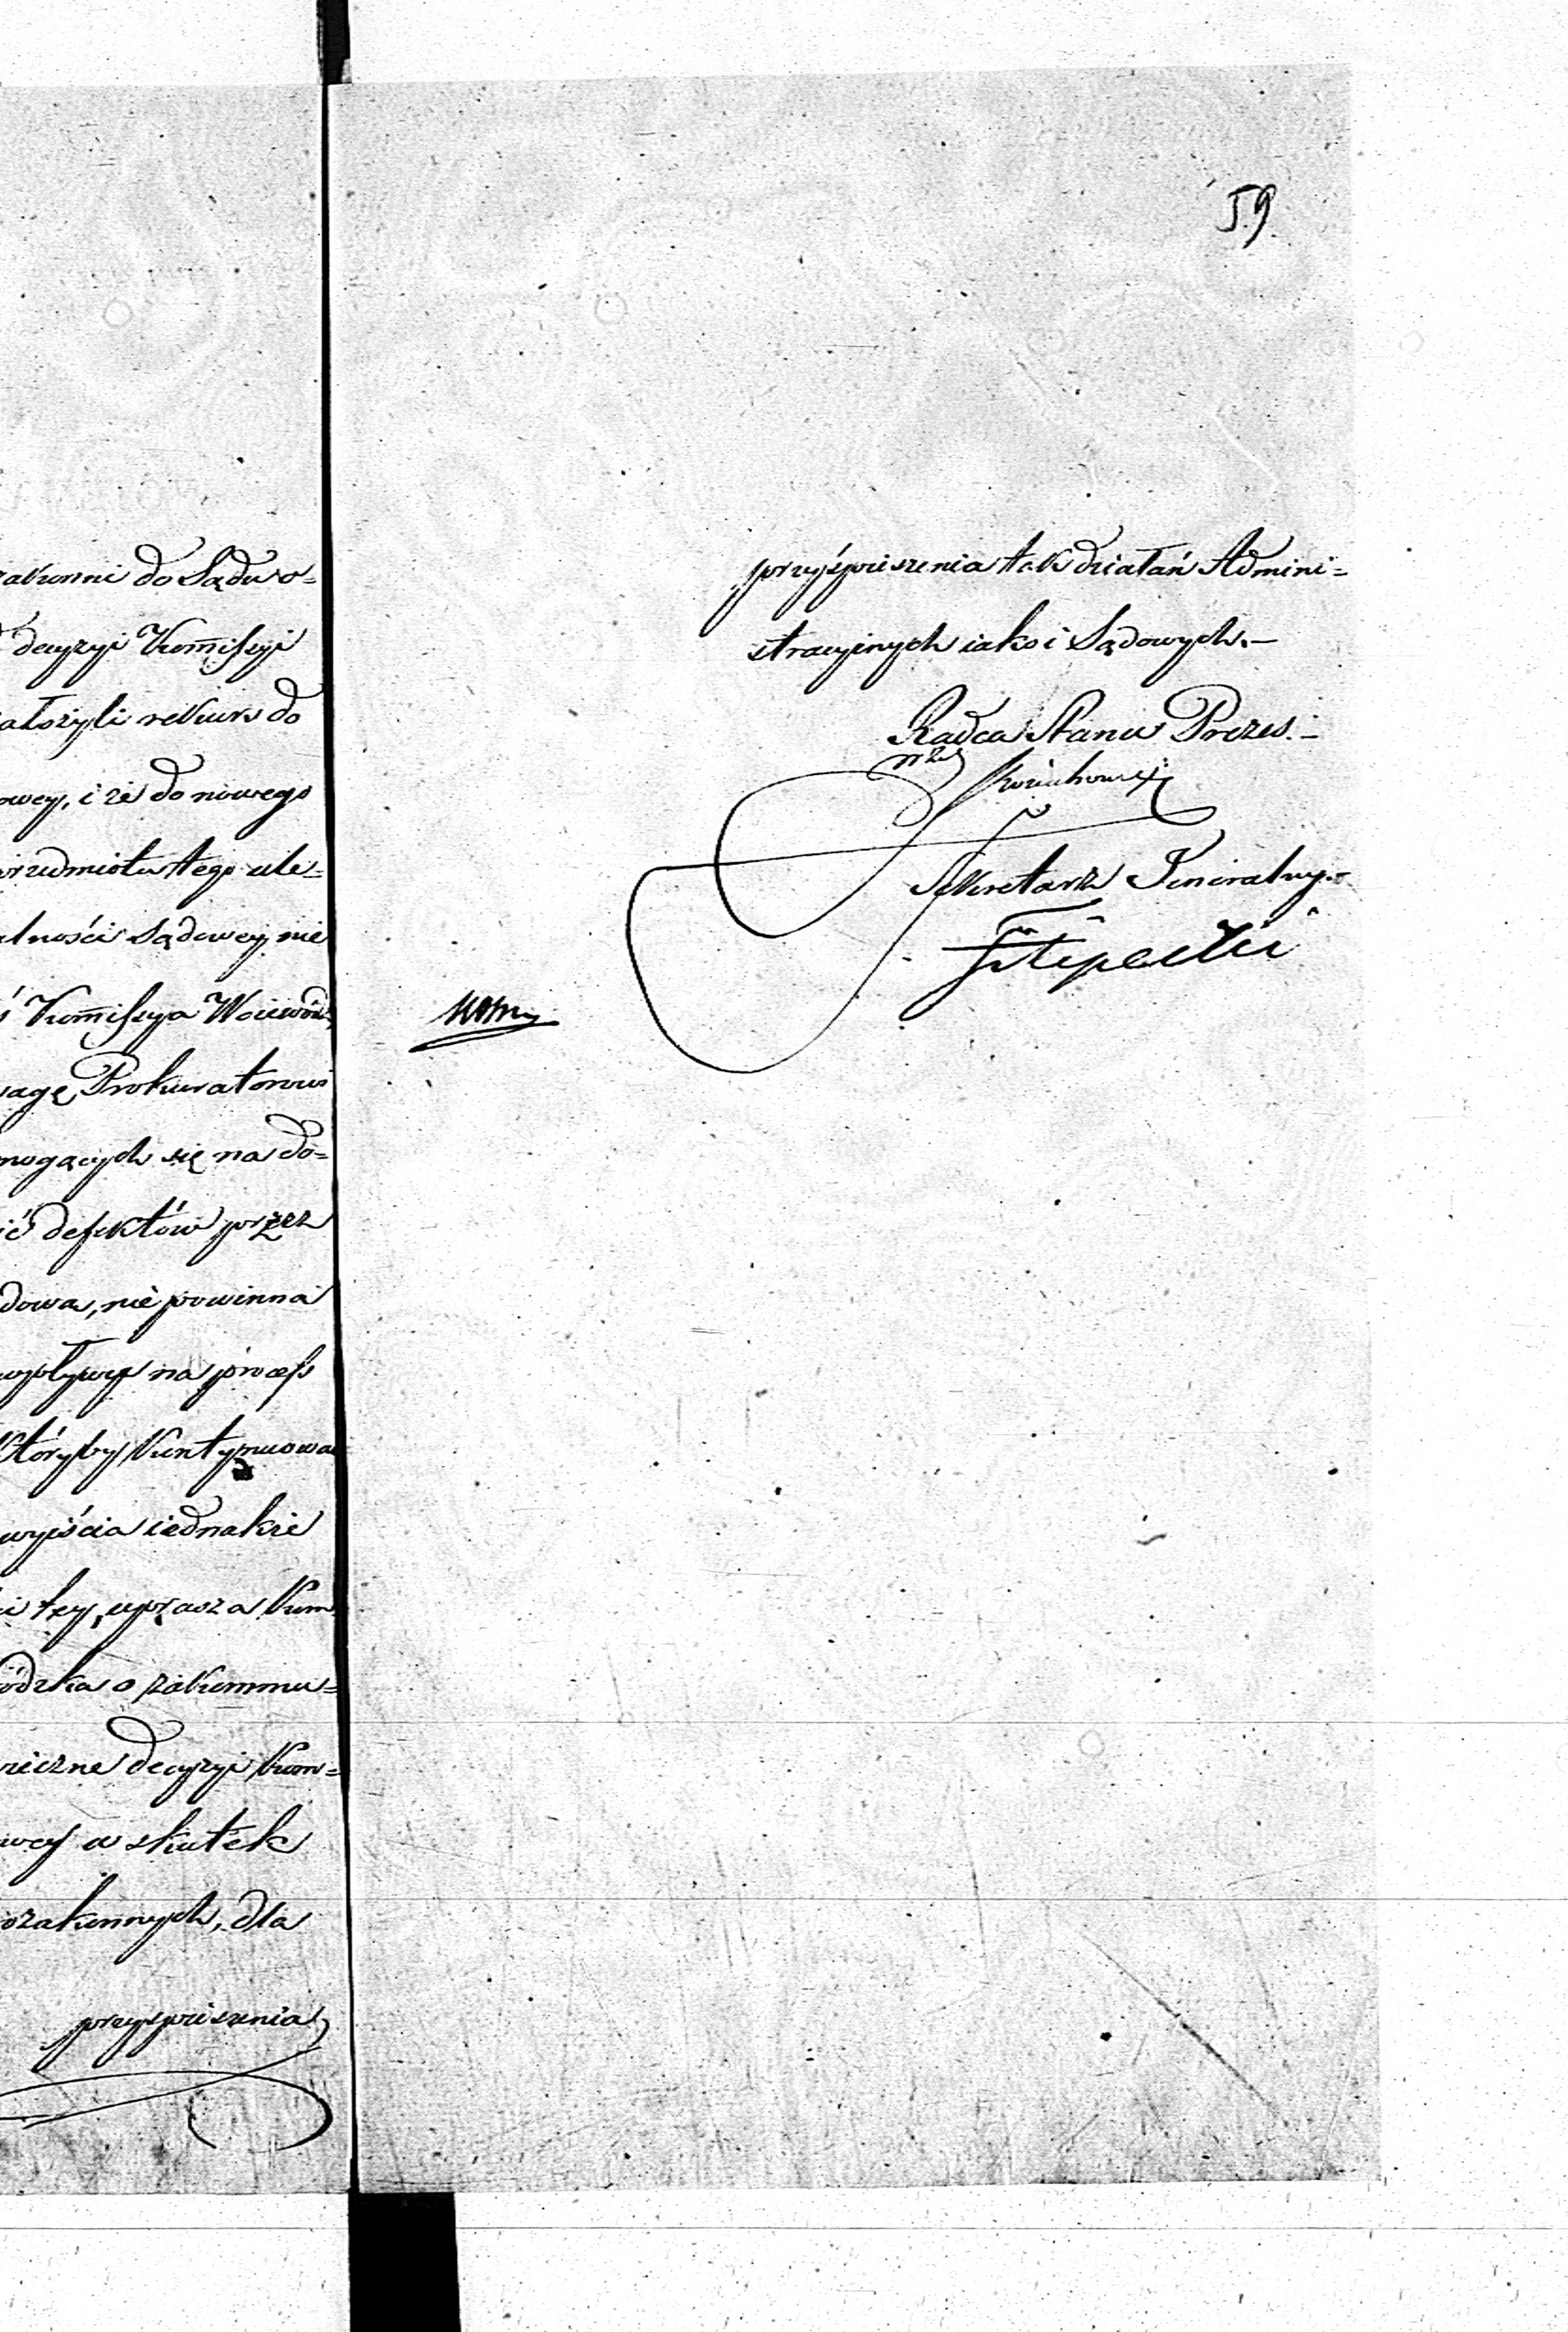 do Sądu o-
decyzyi Kommissyi
ałożyli rekurs do
owey, i że do nowego
rzedmiotu tego ule-
alności Sądowey, nie
Kommissya Woiewódz
wagę Prokuratorowi
mogących się na do-
ić defektów przez
dowa, nie powinna
wpływy na process
któryby kontynuowa
wyiścia iednakże
i tey, uprasza Kom
ódzka o zakommu-
niczne decyzyi Kom-
owey w skutek
ozakonnych, dla
przyspieszenia
59
przyśpieszenia tak działań Admini-
stracyinych iako i Sądowych.-
Radca Stanu Prezes.-
Sekretarz Jeneralny.
Filipecki